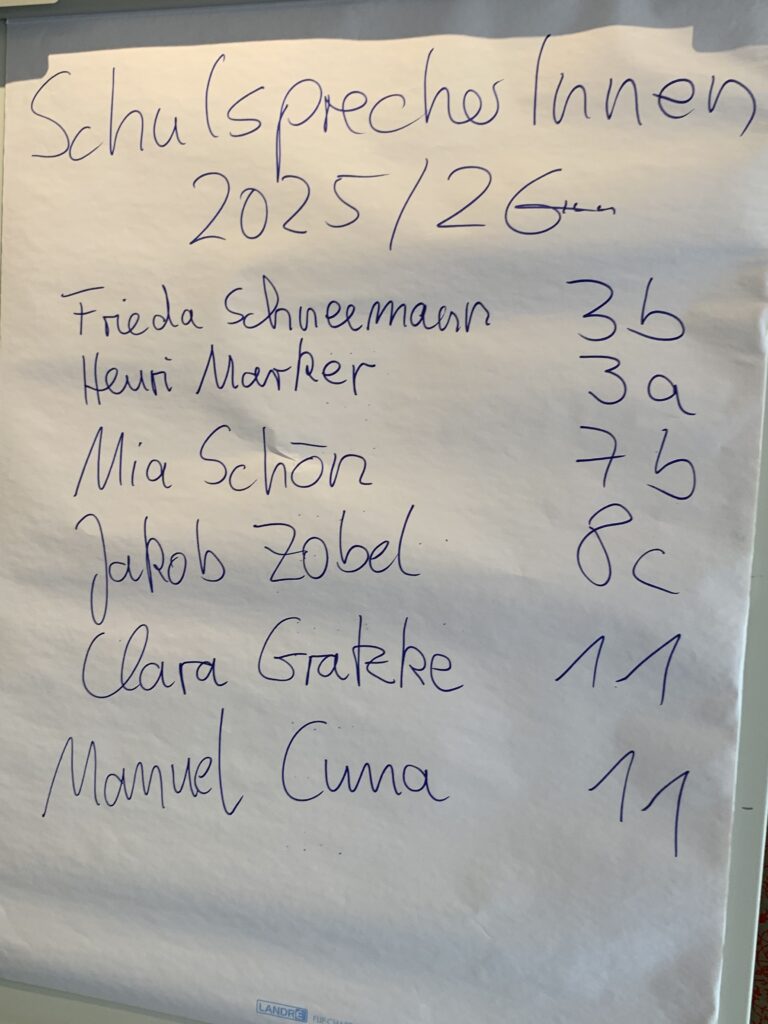 SchulsprecherInnen
2025/26
Frieda Schneemann 3b
Henri Marker 3a
Mia Schön 7b
Jakob Zobel 8c
Clara Gratzke 11
Manuel Cuna 11
LANDRÉ